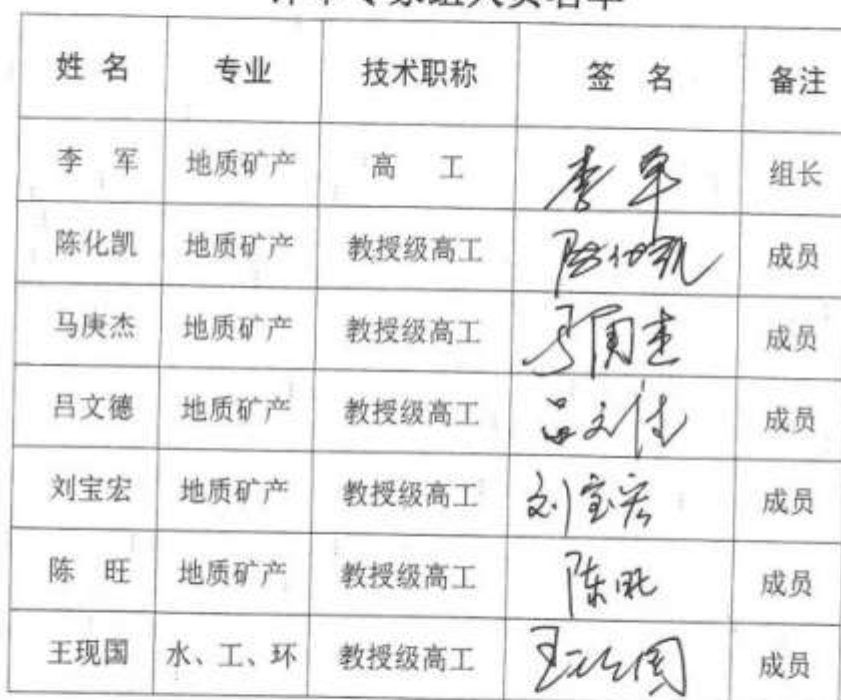 评审专家组人员名单
姓 名 专业 技术职称 签 名 备注
李 军 地质矿产 高 工 李军 组长
陈化凯 地质矿产 教授级高工 陈化凯 成员
马庚杰 地质矿产 教授级高工 成员
吕文德 地质矿产 教授级高工 吕文德 成员
刘宝宏 地质矿产 教授级高工 刘宝宏 成员
陈 旺 地质矿产 教授级高工 陈旺 成员
王现国 水、工、环 教授级高工 王现国 成员